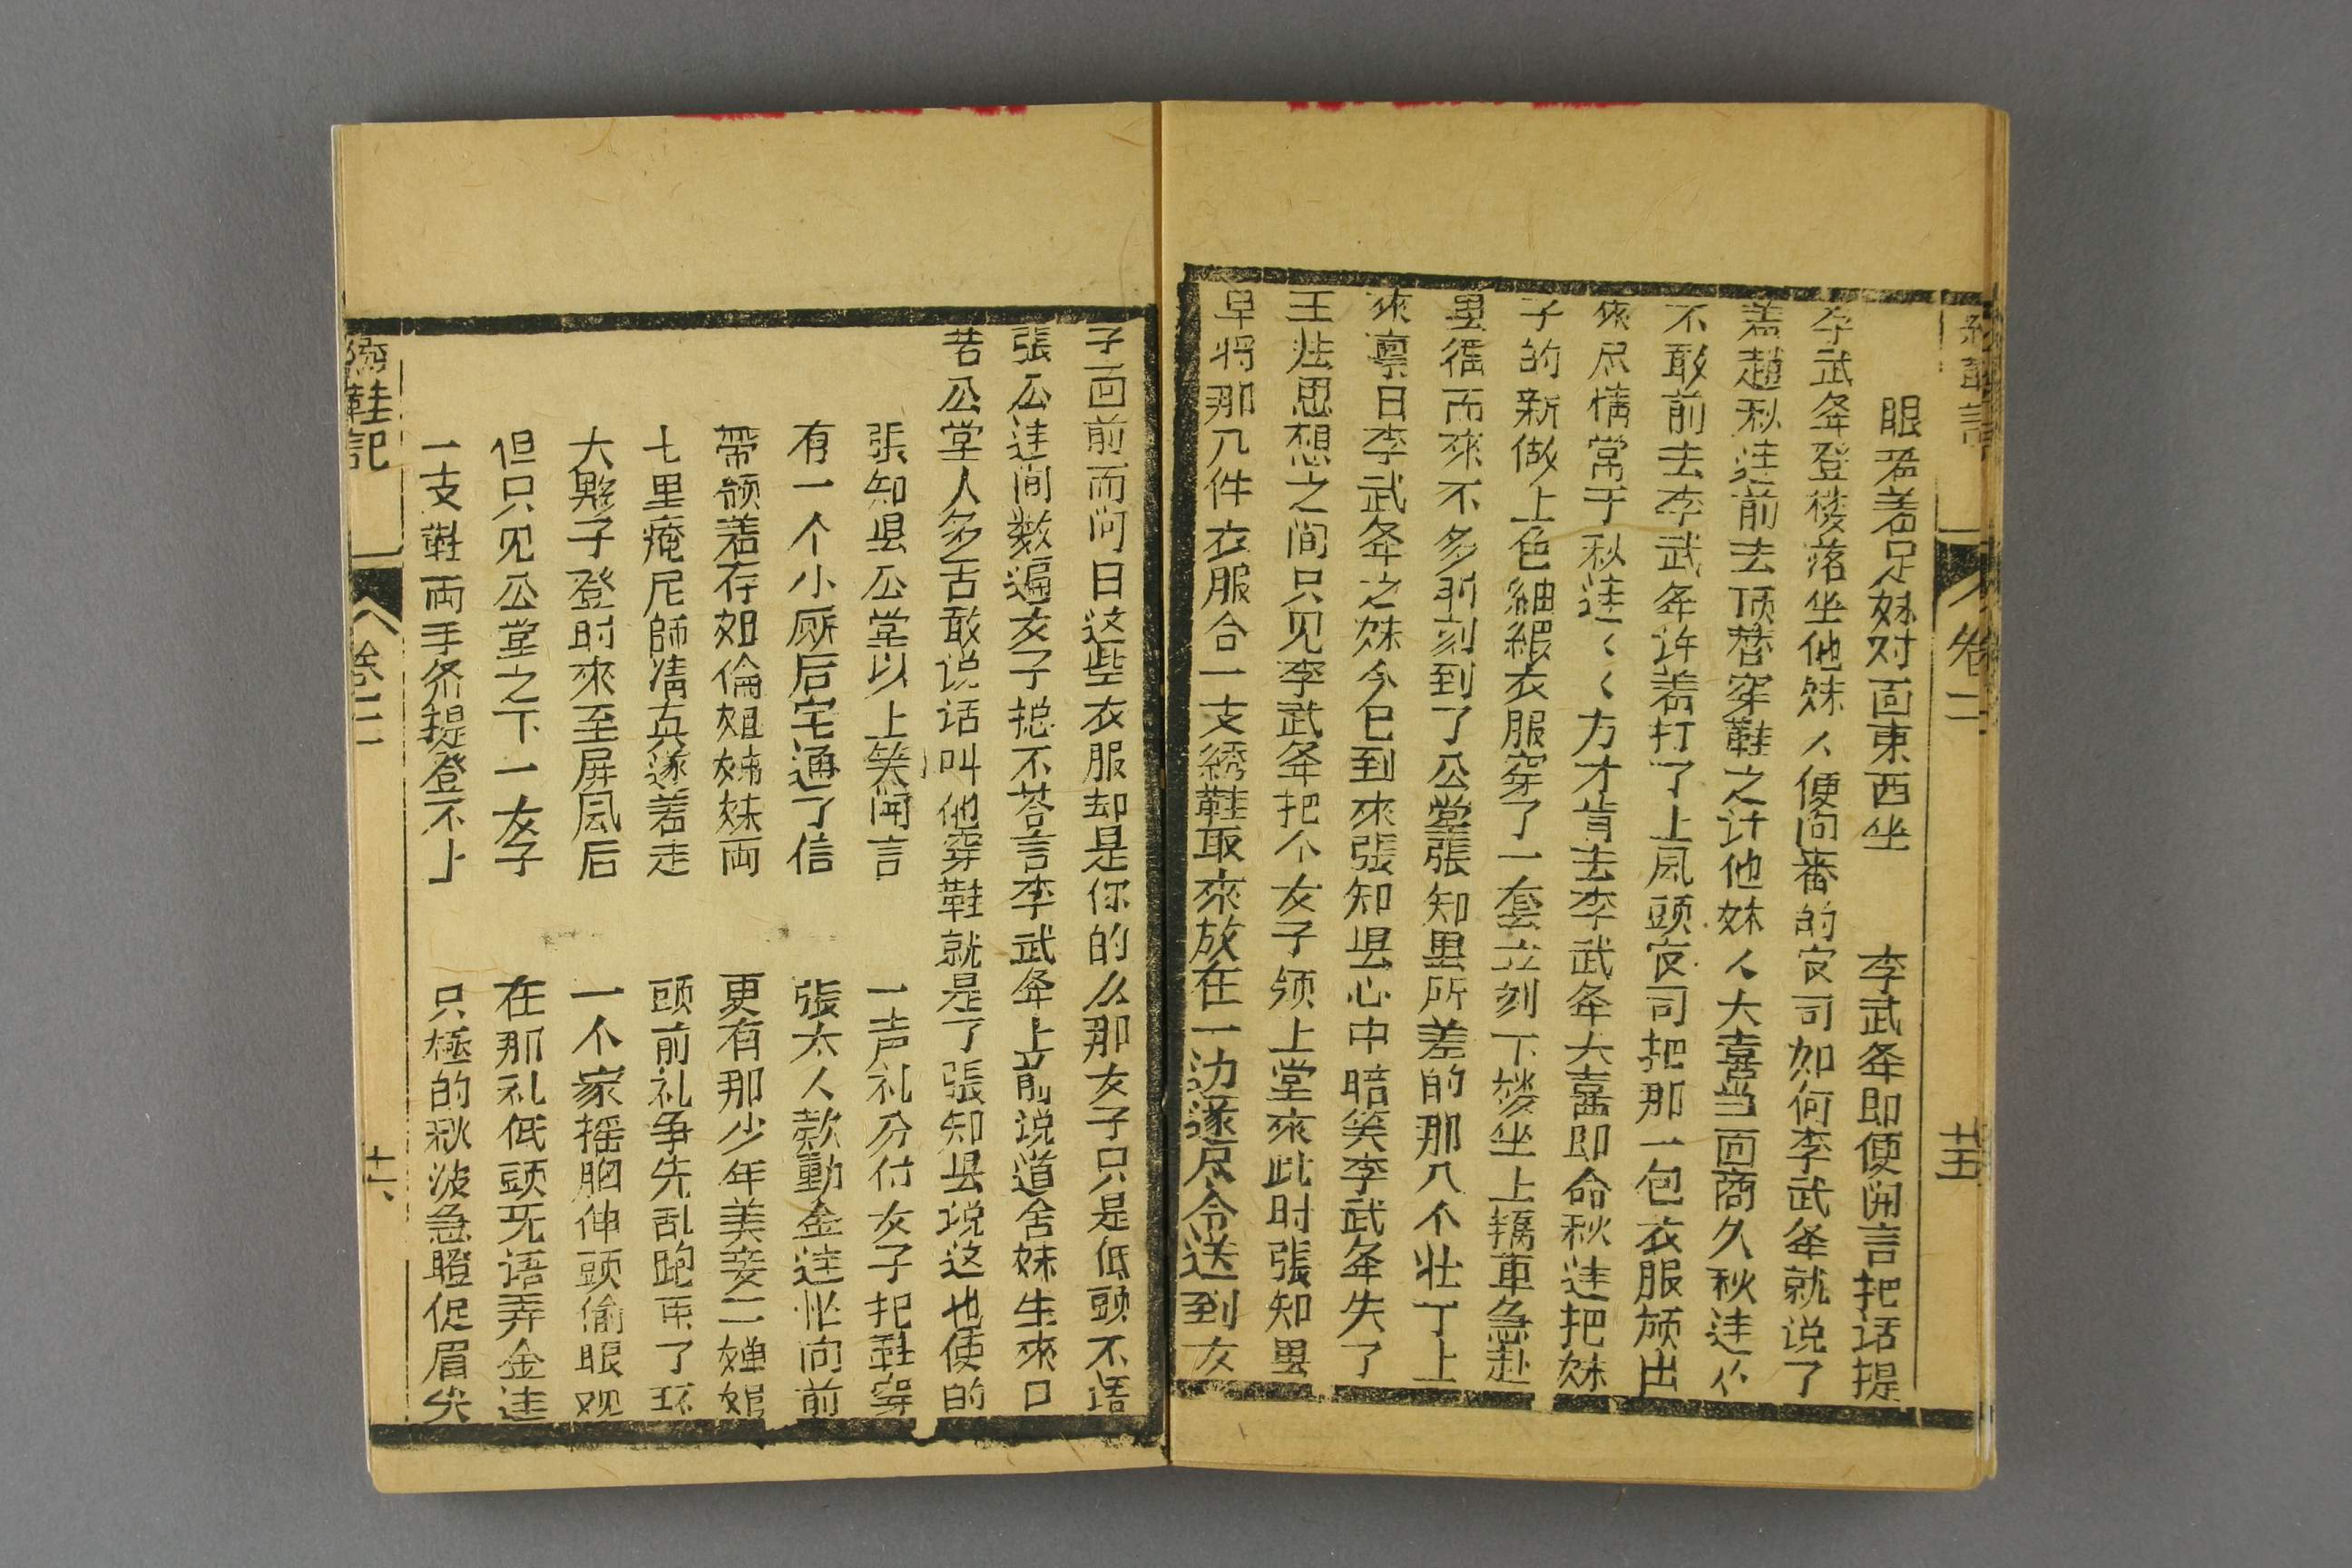 眼否着足妹对面東西坐　李武夆即便開言把话提
李武夆登楼落坐他妹人便问審的官司如何李武夆就说了
盖趙秋莲前去顶替穿鞋之计他妹人大喜当面商久秋莲
不敢前去李武夆许着打了上凤頭官司把那一包衣服颃出
來尽情常于秋莲〻〻方才肯去李武夆大喜即命秋莲把妹
子的新做上色紬緞衣服穿了一套立刻下楼坐上轎車急赴
里徭而來不多前刻到了公堂張知里所差的那几个壮丁上
來禀日李武夆之妹今已到來張知县心中暗笑李武夆失了
王法思想之间只见李武夆把个女子领上堂來此时張知里
早将那几件衣服合一支綉鞋取來放在一边遂尽令送到女
卷二
十五
子面前而问日这些衣服却是你的么那女子只是低頭不语
張公连问数遍女子捴不荅言李武夆上前说道舍妹生來口
苦公堂人多舌敢说话叫他穿鞋就是了張知县说这也使的
張知县公堂以上笑闻言　一声礼分付女子把鞋穿
有一个小厮后宅通了信　張太人欵動金莲忙向前
帶领着存姐倫姐姊妹両　更有那少年美妾二婵娟
七里庵尼師凊真遂着走　頭前礼争先乱跑
大夥子登时來至屏风后　一个家摇胸伸頭偷眼观
但只见公堂之下一女子　在那礼低頭旡语弄金莲
一支鞋両手夆提登不上　只極的秋波急瞪促眉尖
綉鞋記
卷二
十六